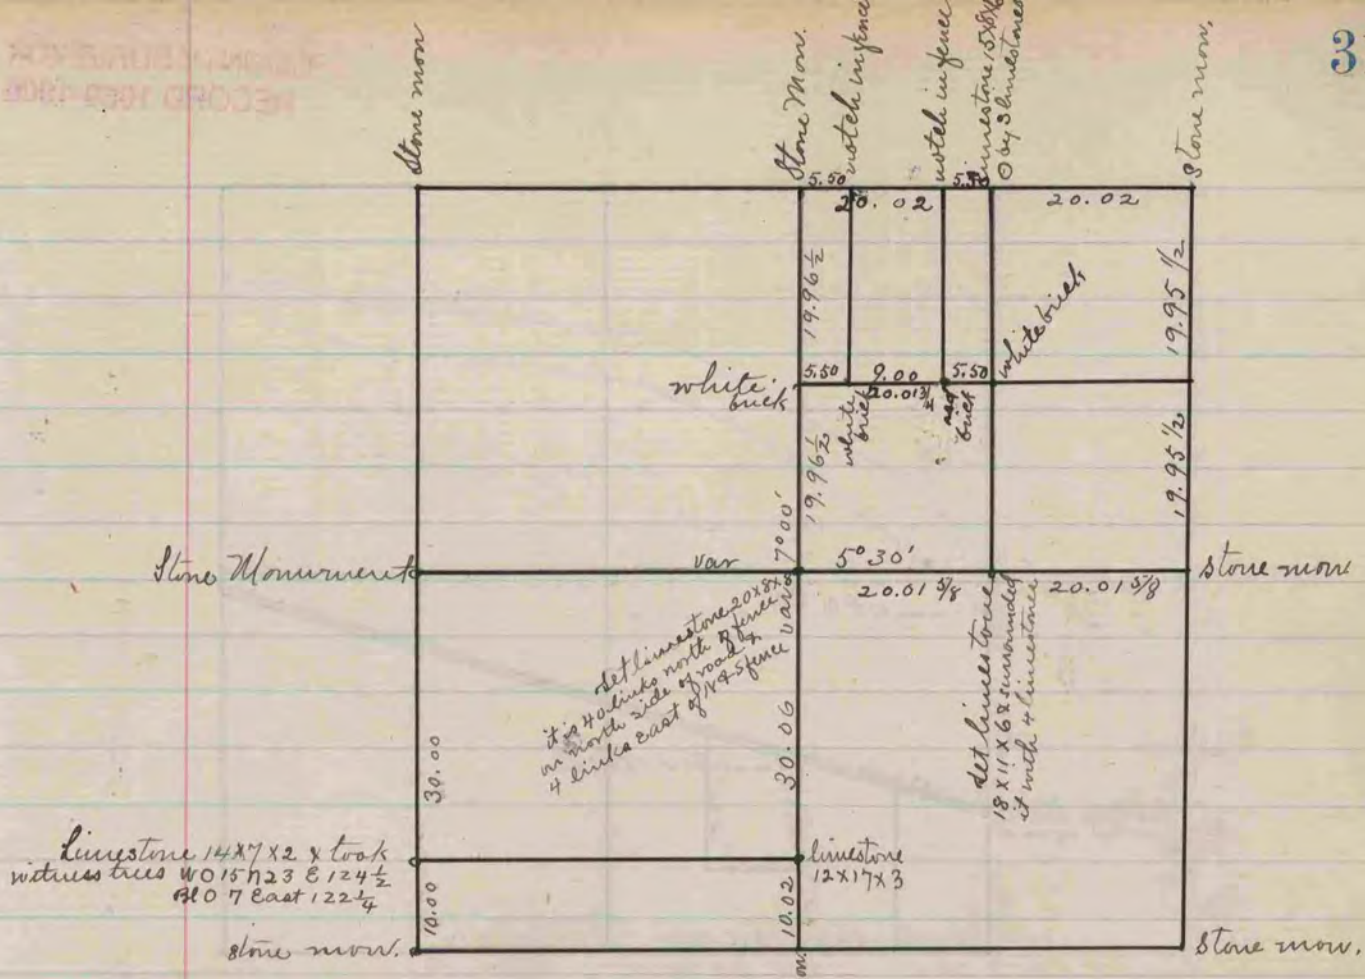 3
RECORD 1869-1901
Stone mon
Stone Mon.
notch in fence
notch in fence
limestone 15x8x6
0 by 3 limestones
stone mon.
5.50
20.02
5.50
20.02
19.96 1/2
19.95 1/2
white brick
white
brick
5.50
9.00
5.50
20.01 3/4
white
brick
red
brick
19.96 1/2
19.95 1/2
Stone Monument
var
7°00'
5°30'
stone mon
20.01 5/8
20.01 5/8
set limestone 20x8x
it is 40 links north of fence
on north side of road &
4 links East of N & S fence
var
set limestone
18x11x6 & surrounded
it with 4 limestones
30.00
30.06
Limestone 14x7x2 & took
witness trees WO 15 N23 E 124 1/2
Bl O 7 East 122 1/4
limestone
12x17x3
10.00
10.02
stone mon.
on.
Stone mon.